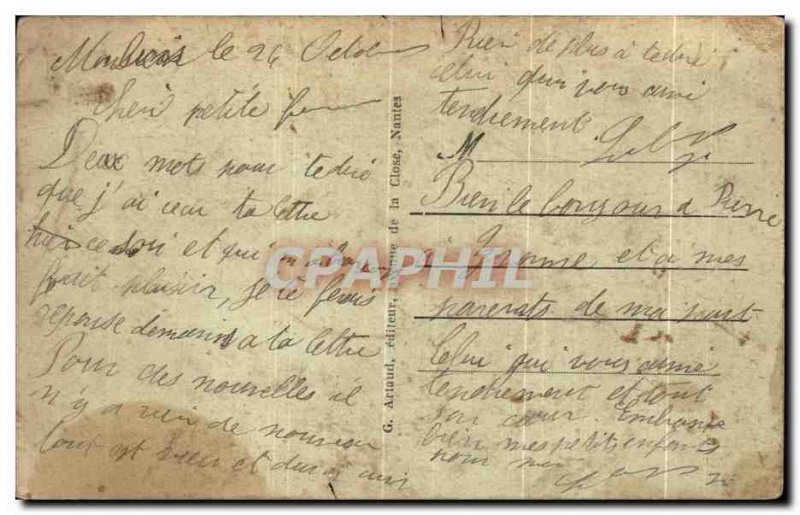 le 26 Octob
Cheri petite
Deux mots pour te dire
que j'ai ceur ta lettre
hier ce soir et qui
fait plaisir, je te ferais
reponse demain a ta lettre
Pour des nouvelles il
n'y a rien de nouveau
tout est bien et
G. Artaud, éditeur, de la Close, Nantes
Rien de plus a te dire
celui qui vous aime
tendrement
M
Bien le bonjour a Pierre
et a mes
parents de ma part
Celui qui vous aime
tendrement et tout
son coeur Embrasse
bien mes petits enfants
pour moi
CPAPHIL